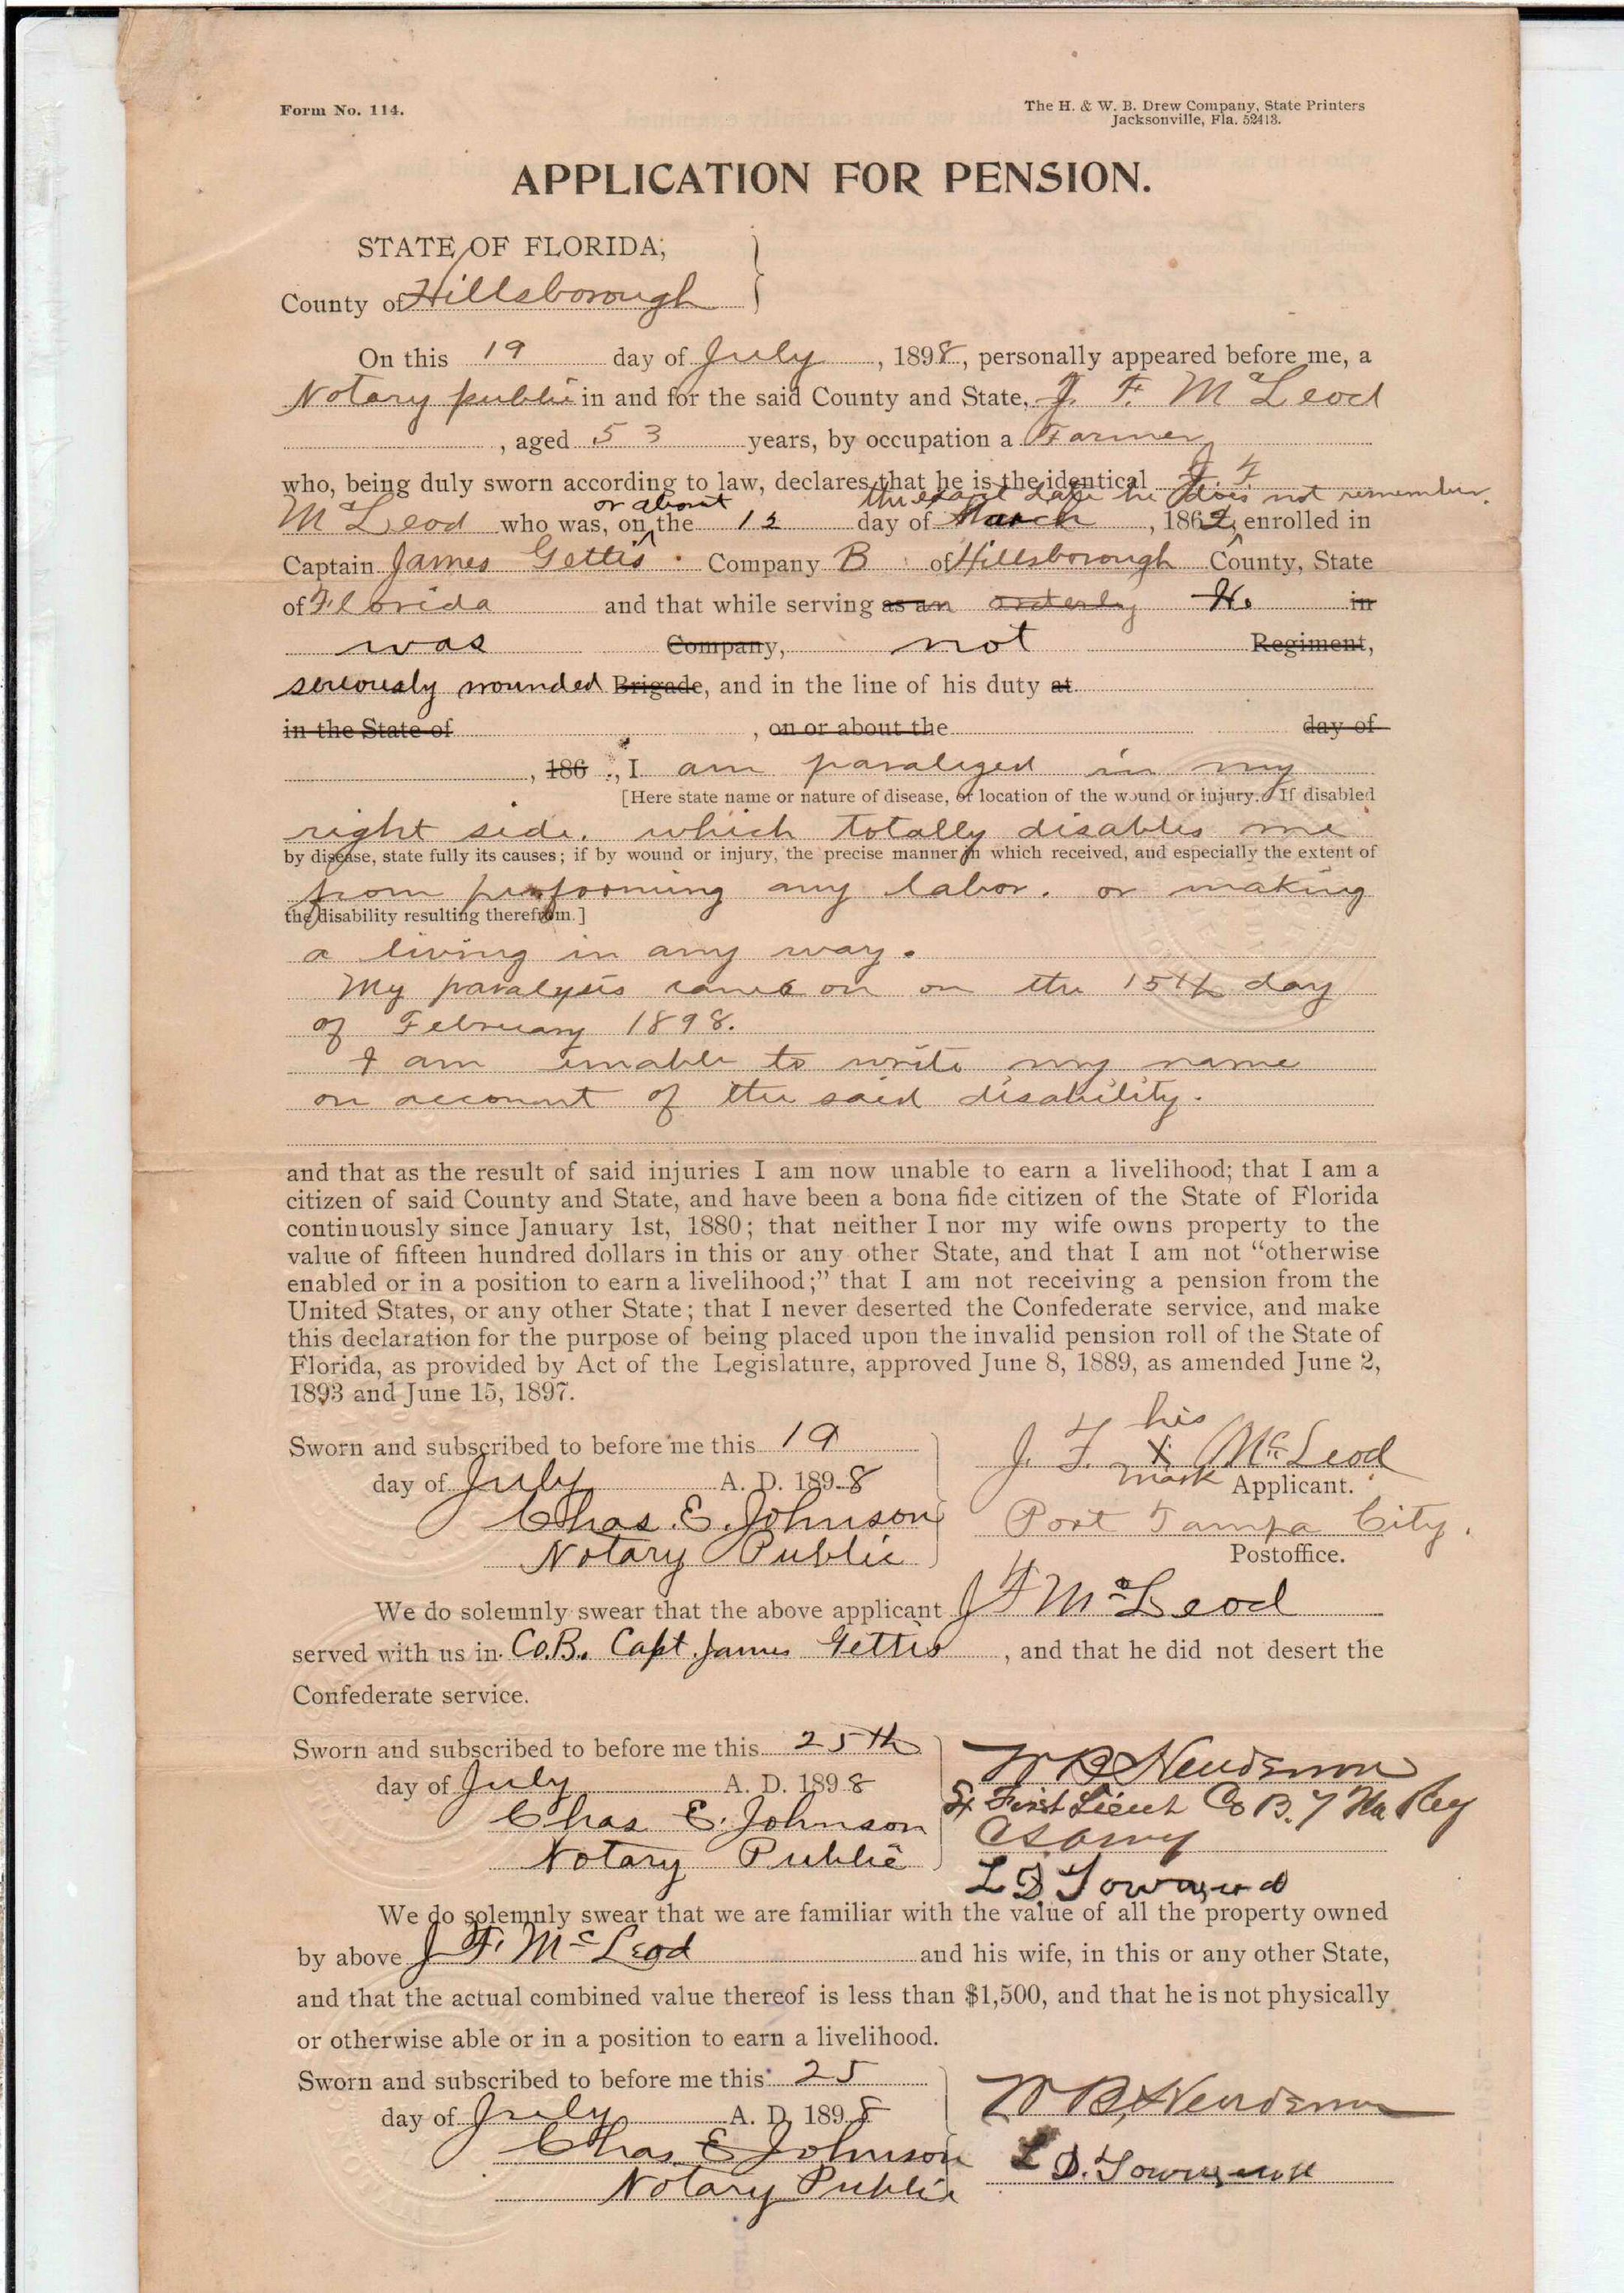 Form No. 114.
The H. & W. B. Drew Company, State Printers
Jacksonville, Fla. 52413.
APPLICATION FOR PENSION.
STATE OF FLORIDA,
County of Hillsborough
On this 19 day of July, 1898, personally appeared before me, a
Notary public in and for the said County and State, J. F. McLeod
, aged 53 years, by occupation a Farmer
who, being duly sworn according to law, declares that he is the identical J. F.
or about the exact date he does not remember.
McLeod who was, on the 12 day of March, 1862, enrolled in
Captain James Gettis Company B of Hillsborough County, State
of Florida and that while serving as an orderly He in
was Company, not Regiment,
seriously wounded Brigade, and in the line of his duty at
in the State of , on or about the day of
, 186 , I am paralized in my
[Here state name or nature of disease, or location of the wound or injury. If disabled
right side. which totally disables me
by disease, state fully its causes; if by wound or injury, the precise manner in which received, and especially the extent of
from performing any labor. or making
the disability resulting therefrom.]
a living in any way.
My paralysis came on on the 15th day
of February 1898.
I am unable to write my name
on account of the said disability.
and that as the result of said injuries I am now unable to earn a livelihood; that I am a
citizen of said County and State, and have been a bona fide citizen of the State of Florida
continuously since January 1st, 1880; that neither I nor my wife owns property to the
value of fifteen hundred dollars in this or any other State, and that I am not "otherwise
enabled or in a position to earn a livelihood;" that I am not receiving a pension from the
United States, or any other State; that I never deserted the Confederate service, and make
this declaration for the purpose of being placed upon the invalid pension roll of the State of
Florida, as provided by Act of the Legislature, approved June 8, 1889, as amended June 2,
1893 and June 15, 1897.
his
Sworn and subscribed to before me this 19 J. F. X McLeod
day of July A. D. 1898 mark Applicant.
Chas. E. Johnson Port Tampa City.
Notary Public Postoffice.
We do solemnly swear that the above applicant J F McLeod
served with us in Co. B. Capt. James Gettis, and that he did not desert the
Confederate service.
Sworn and subscribed to before me this 25th W B Henderson
day of July A. D. 1898 First Lieut Co B. 7 Fla Reg
Chas E. Johnson C S Army
Notary Public L D Townsend
We do solemnly swear that we are familiar with the value of all the property owned
by above J. F. McLeod and his wife, in this or any other State,
and that the actual combined value thereof is less than $1,500, and that he is not physically
or otherwise able or in a position to earn a livelihood.
Sworn and subscribed to before me this 25 W B. Henderson
day of July A. D. 1898
Chas. E Johnson L D. Townsend
Notary Public